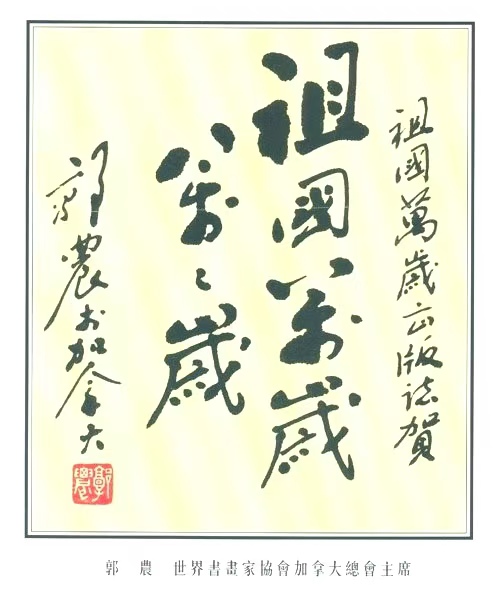 祖國萬歲出版誌賀
祖國萬歲
萬〻歲
郭農於加拿大
郭農
郭 農 世界書畫家協會加拿大總會主席